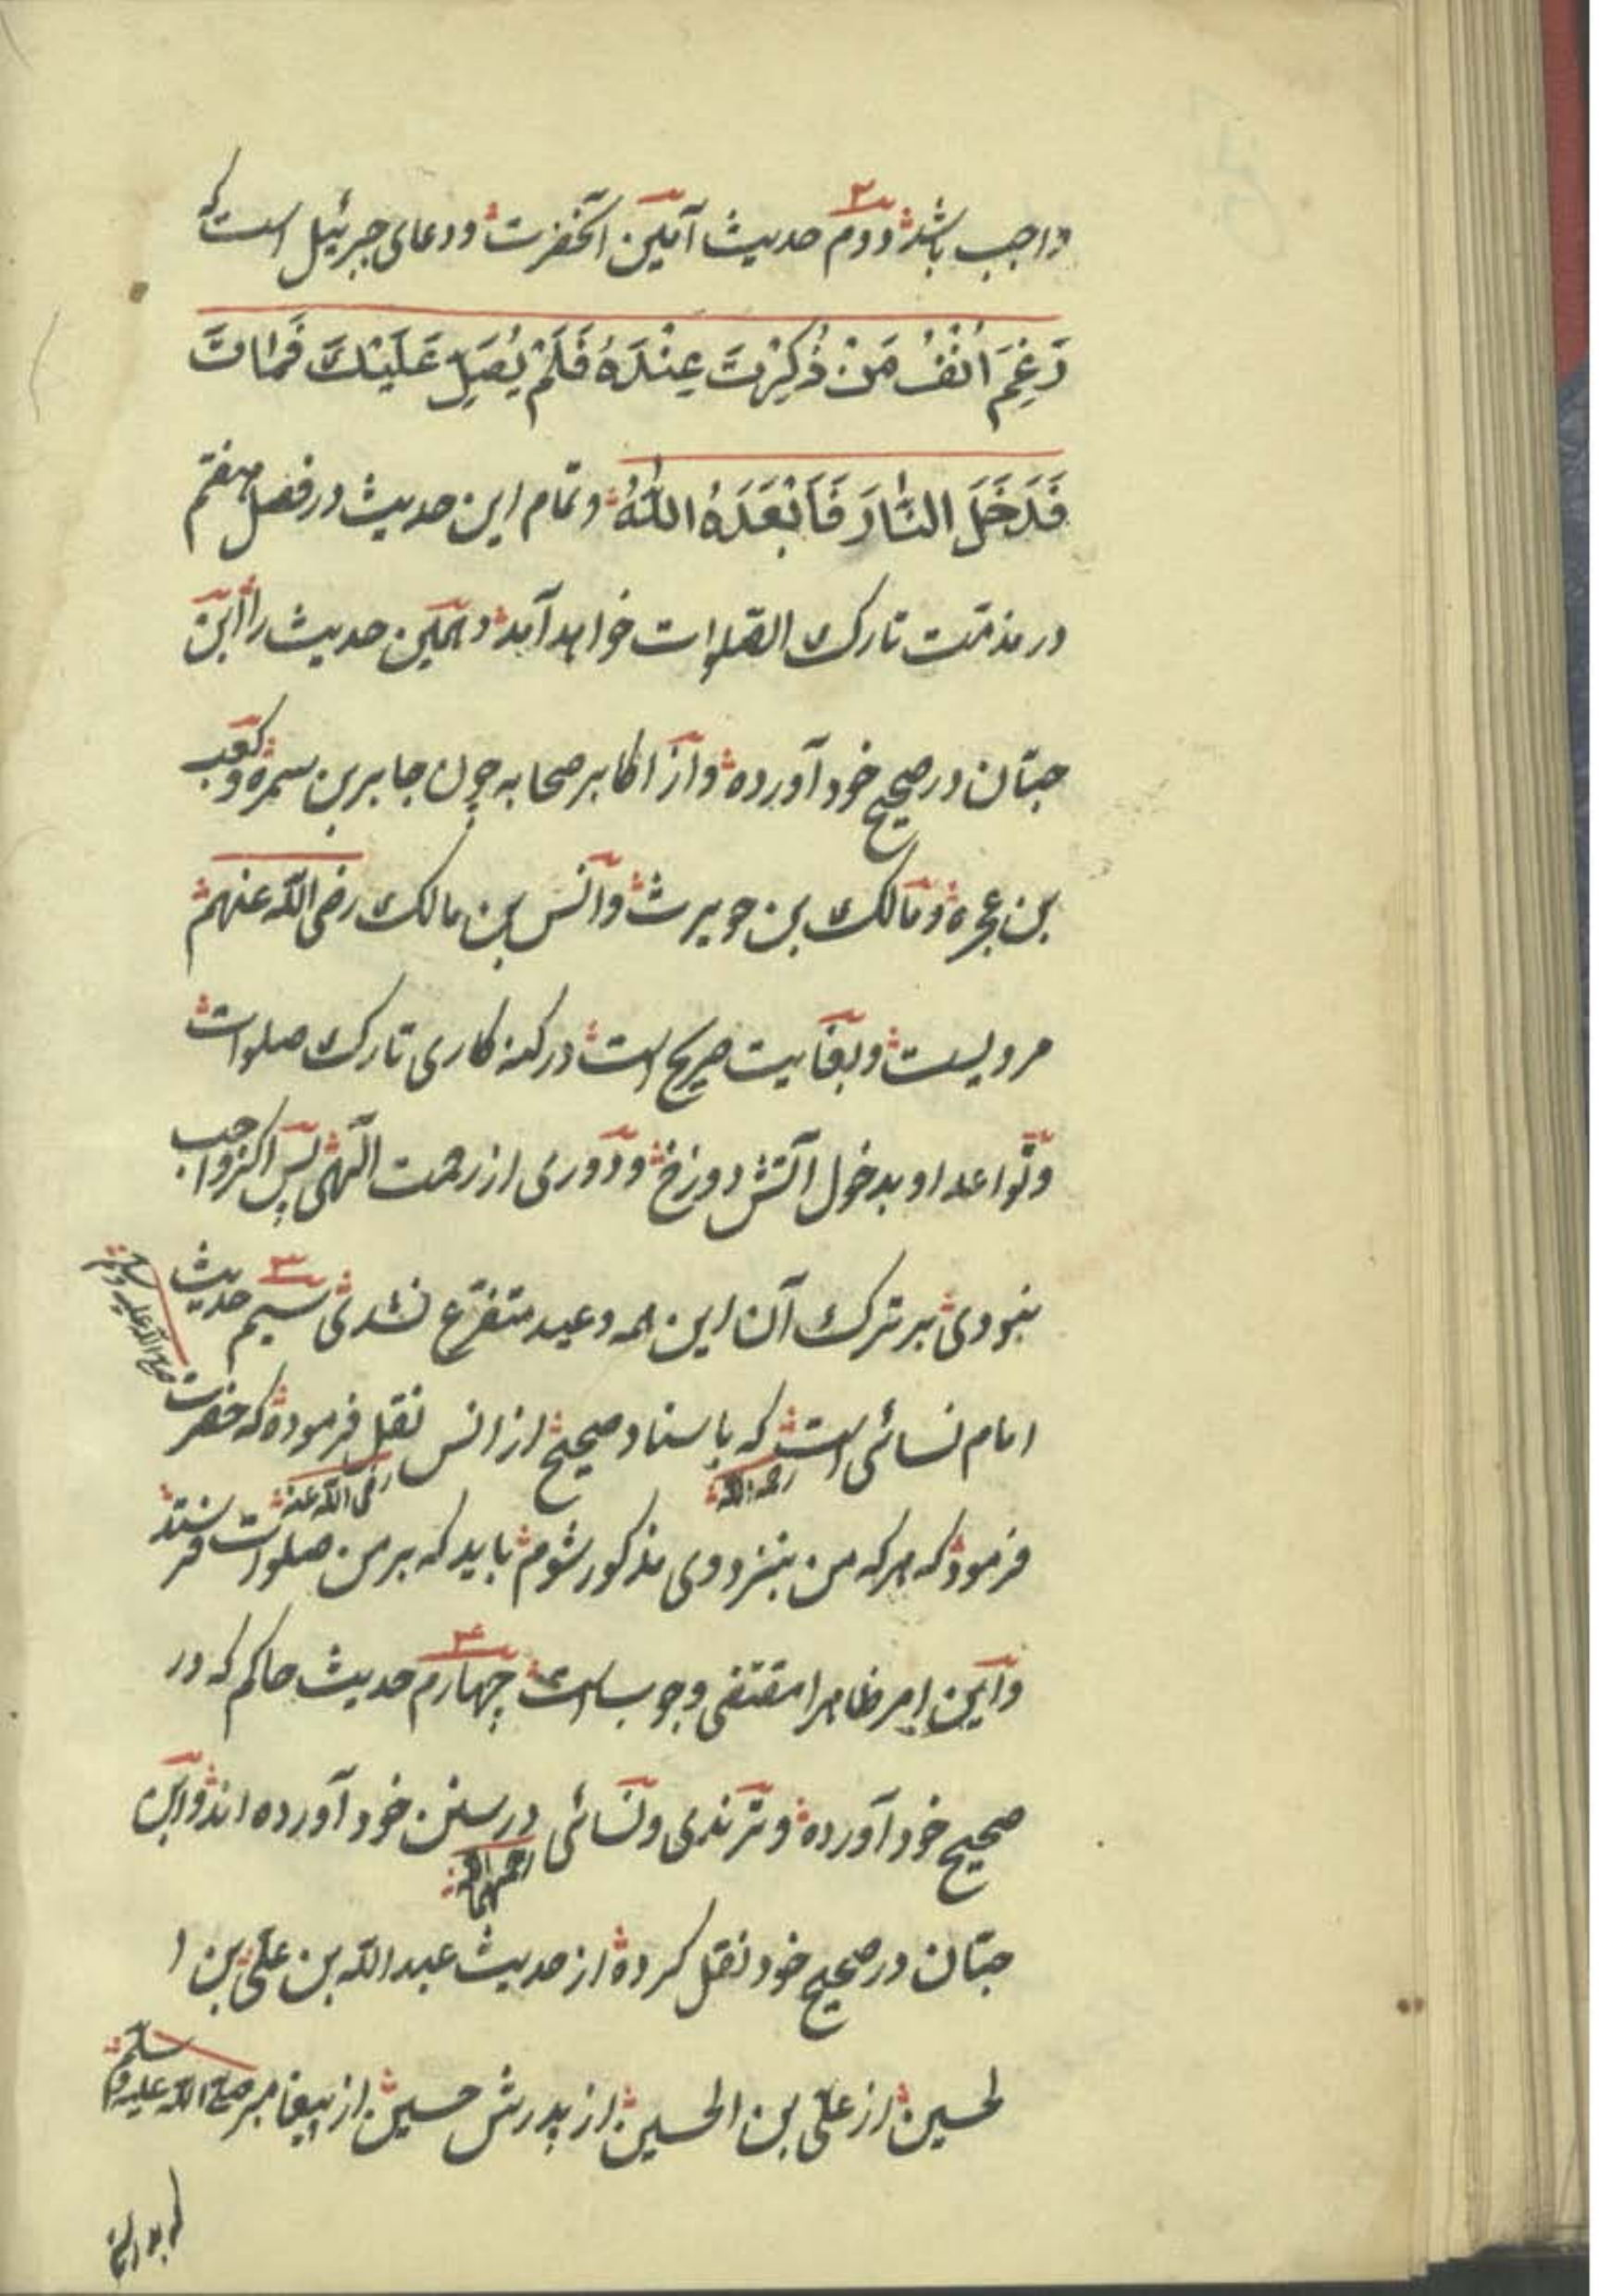 واجب باشد و دوم حدیث آمین آنحضرت و دعای جبرئیل است که
رَغِمَ اَنْفُ مَنْ ذُكِرْتَ عِنْدَهُ فَلَمْ يُصَلِّ عَلَيْكَ فَمَاتَ
فَدَخَلَ النَّارَ فَاَبْعَدَهُ اللّٰهُ و تمام این حدیث در فصل هفتم
در مذمّت تارک الصّلوات خواهد آمد و همین حدیث را ابن
حبّان در صحیح خود آورده و از اکابر صحابه چون جابر بن سمره و کعب
بن عجره و مالک بن حویرث و انس بن مالک رضی الله عنهم
مرویست و بغایت صریح است در کنه کاری تارک صلوات
و تواعد او بدخول آتش دوزخ و دوری از رحمت الٓهی پس اکر واجب
نبودی بر ترک آن این همه وعید متفرّع نشدی سیم حدیث
امام نسائی رحمه الله است که باسناد صحیح از انس رضی الله عنه نقل فرموده که حضرت صلی الله علیه وسلم
فرمود که هر که من بنزد وی مذکور شوم باید که بر من صلوات فرستد
و این امر ظاهرا مقتضی وجوب است چهارم حدیث حاکم که در
صحیح خود آورده و ترمذی و نسائی رحمهما الله در سنن خود آورده اند و ابن
حبّان در صحیح خود نقل کرده از حدیث عبد الله بن علی بن ا
لحسین از علی بن الحسین از پدرش حسین از پیغامبر صلی الله علیه و سلم